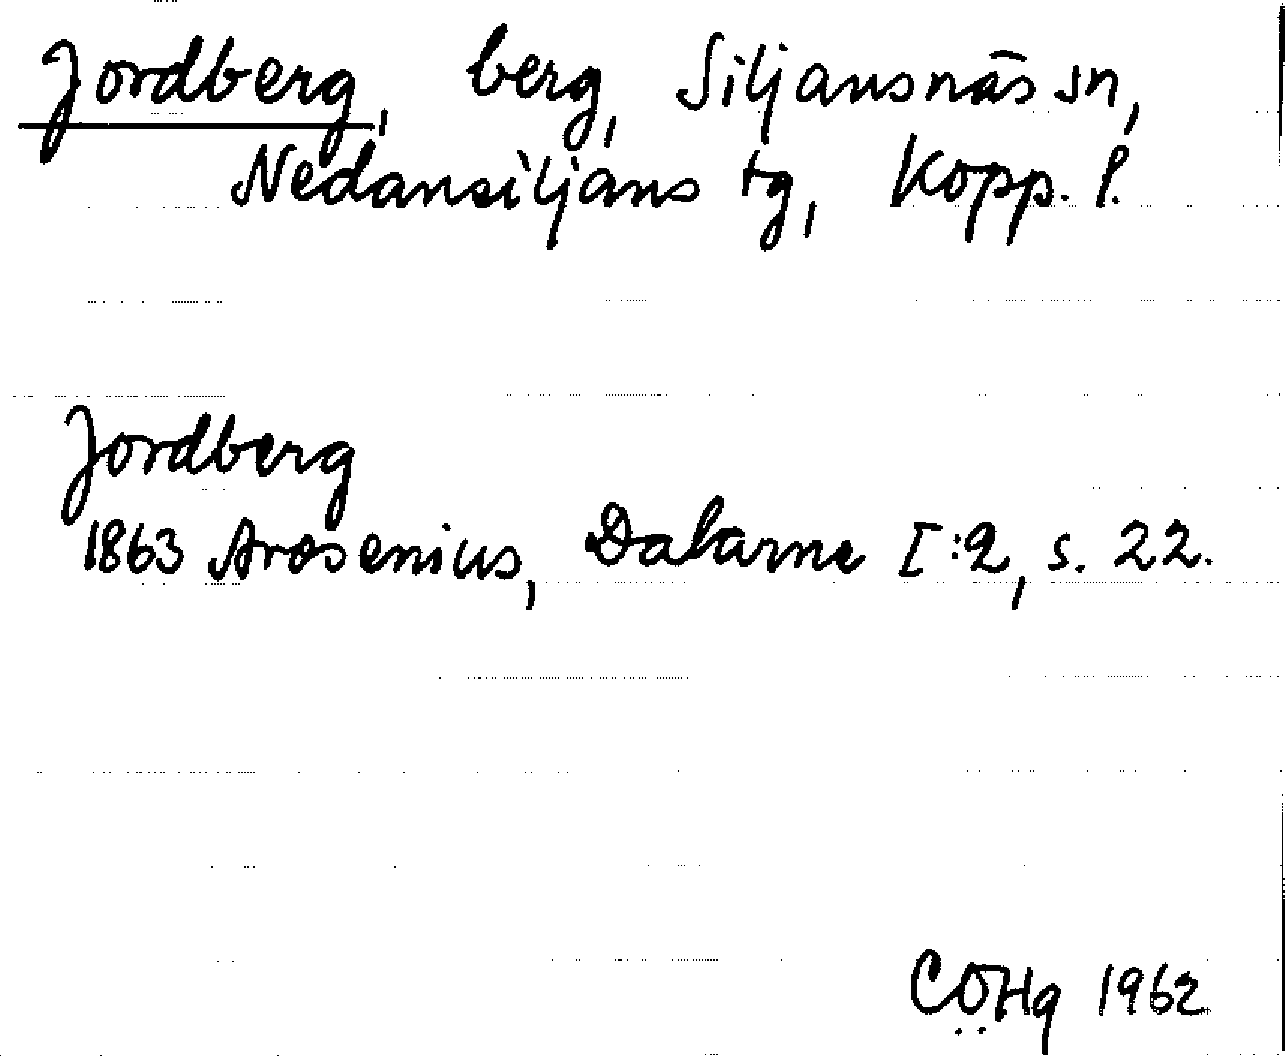 Jordberg, berg, Siljansnäs sn,
Nedansiljans tg, Kopp. l.
Jordberg
1863 Arosenius, Dalarne I:2, s. 22.
CÖHg 1962